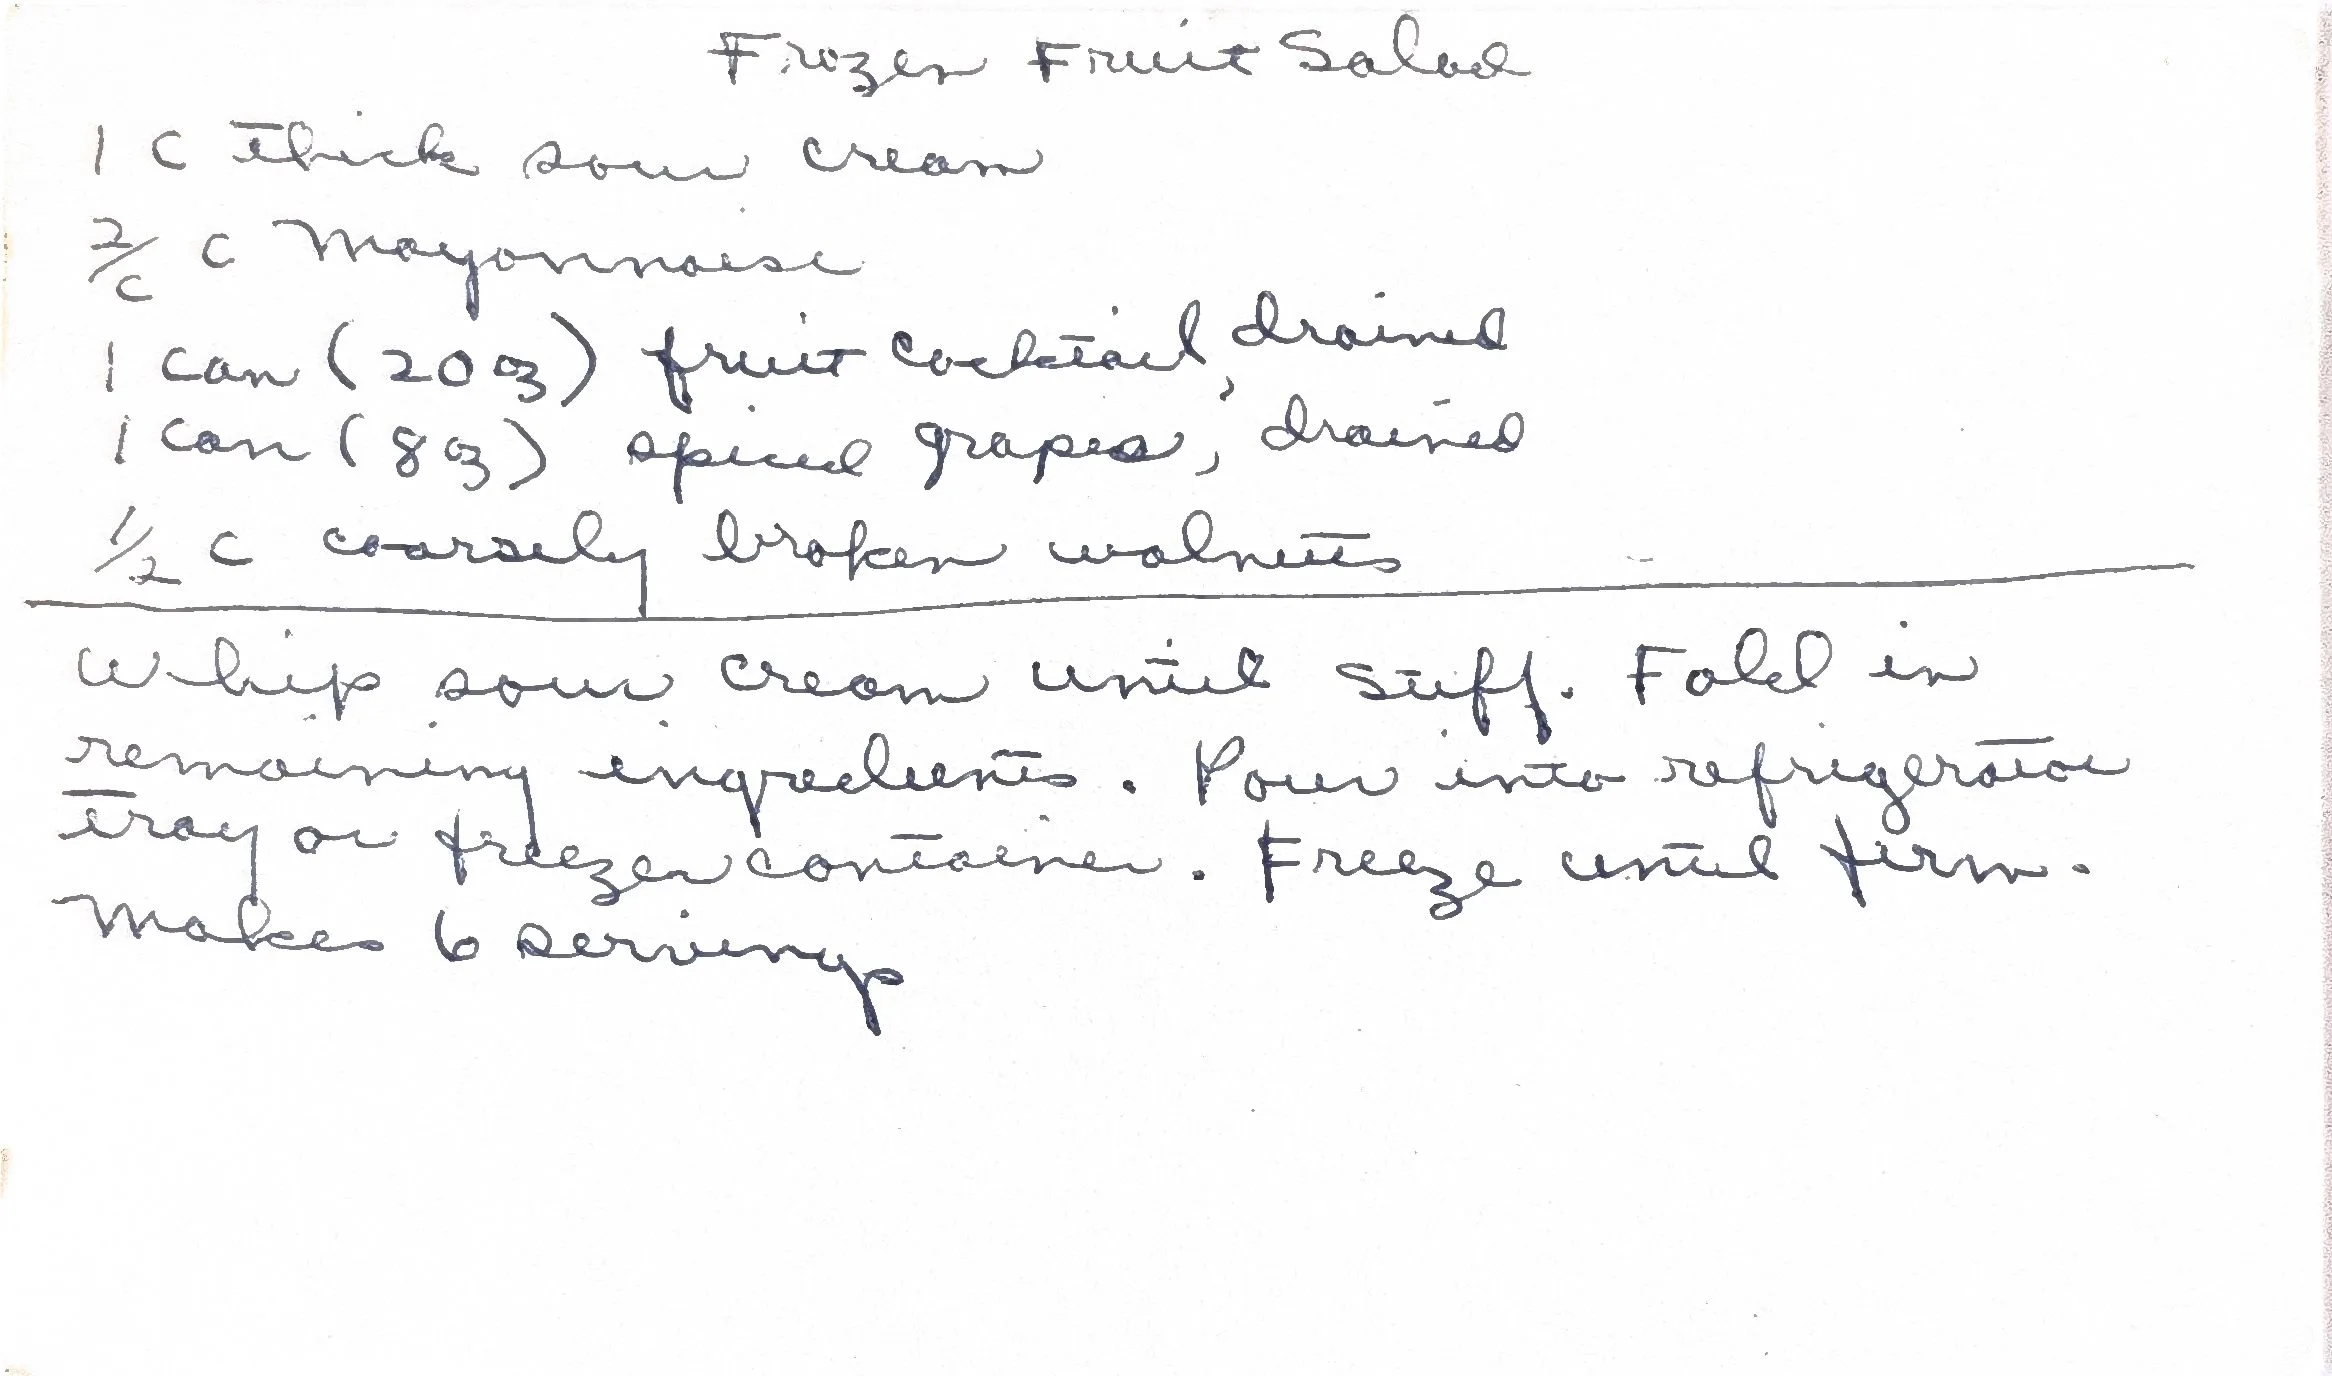 Frozen Fruit Salad
1 c thick sour cream
2/c c Mayonnaise
1 can (20 oz) fruit cocktail, drained
1 can (8 oz) spiced grapes, drained
1/2 c coarsely broken walnuts
Whip sour cream until stiff. Fold in
remaining ingredients. Pour into refrigerator
tray or freezer container. Freeze until firm.
Makes 6 servings